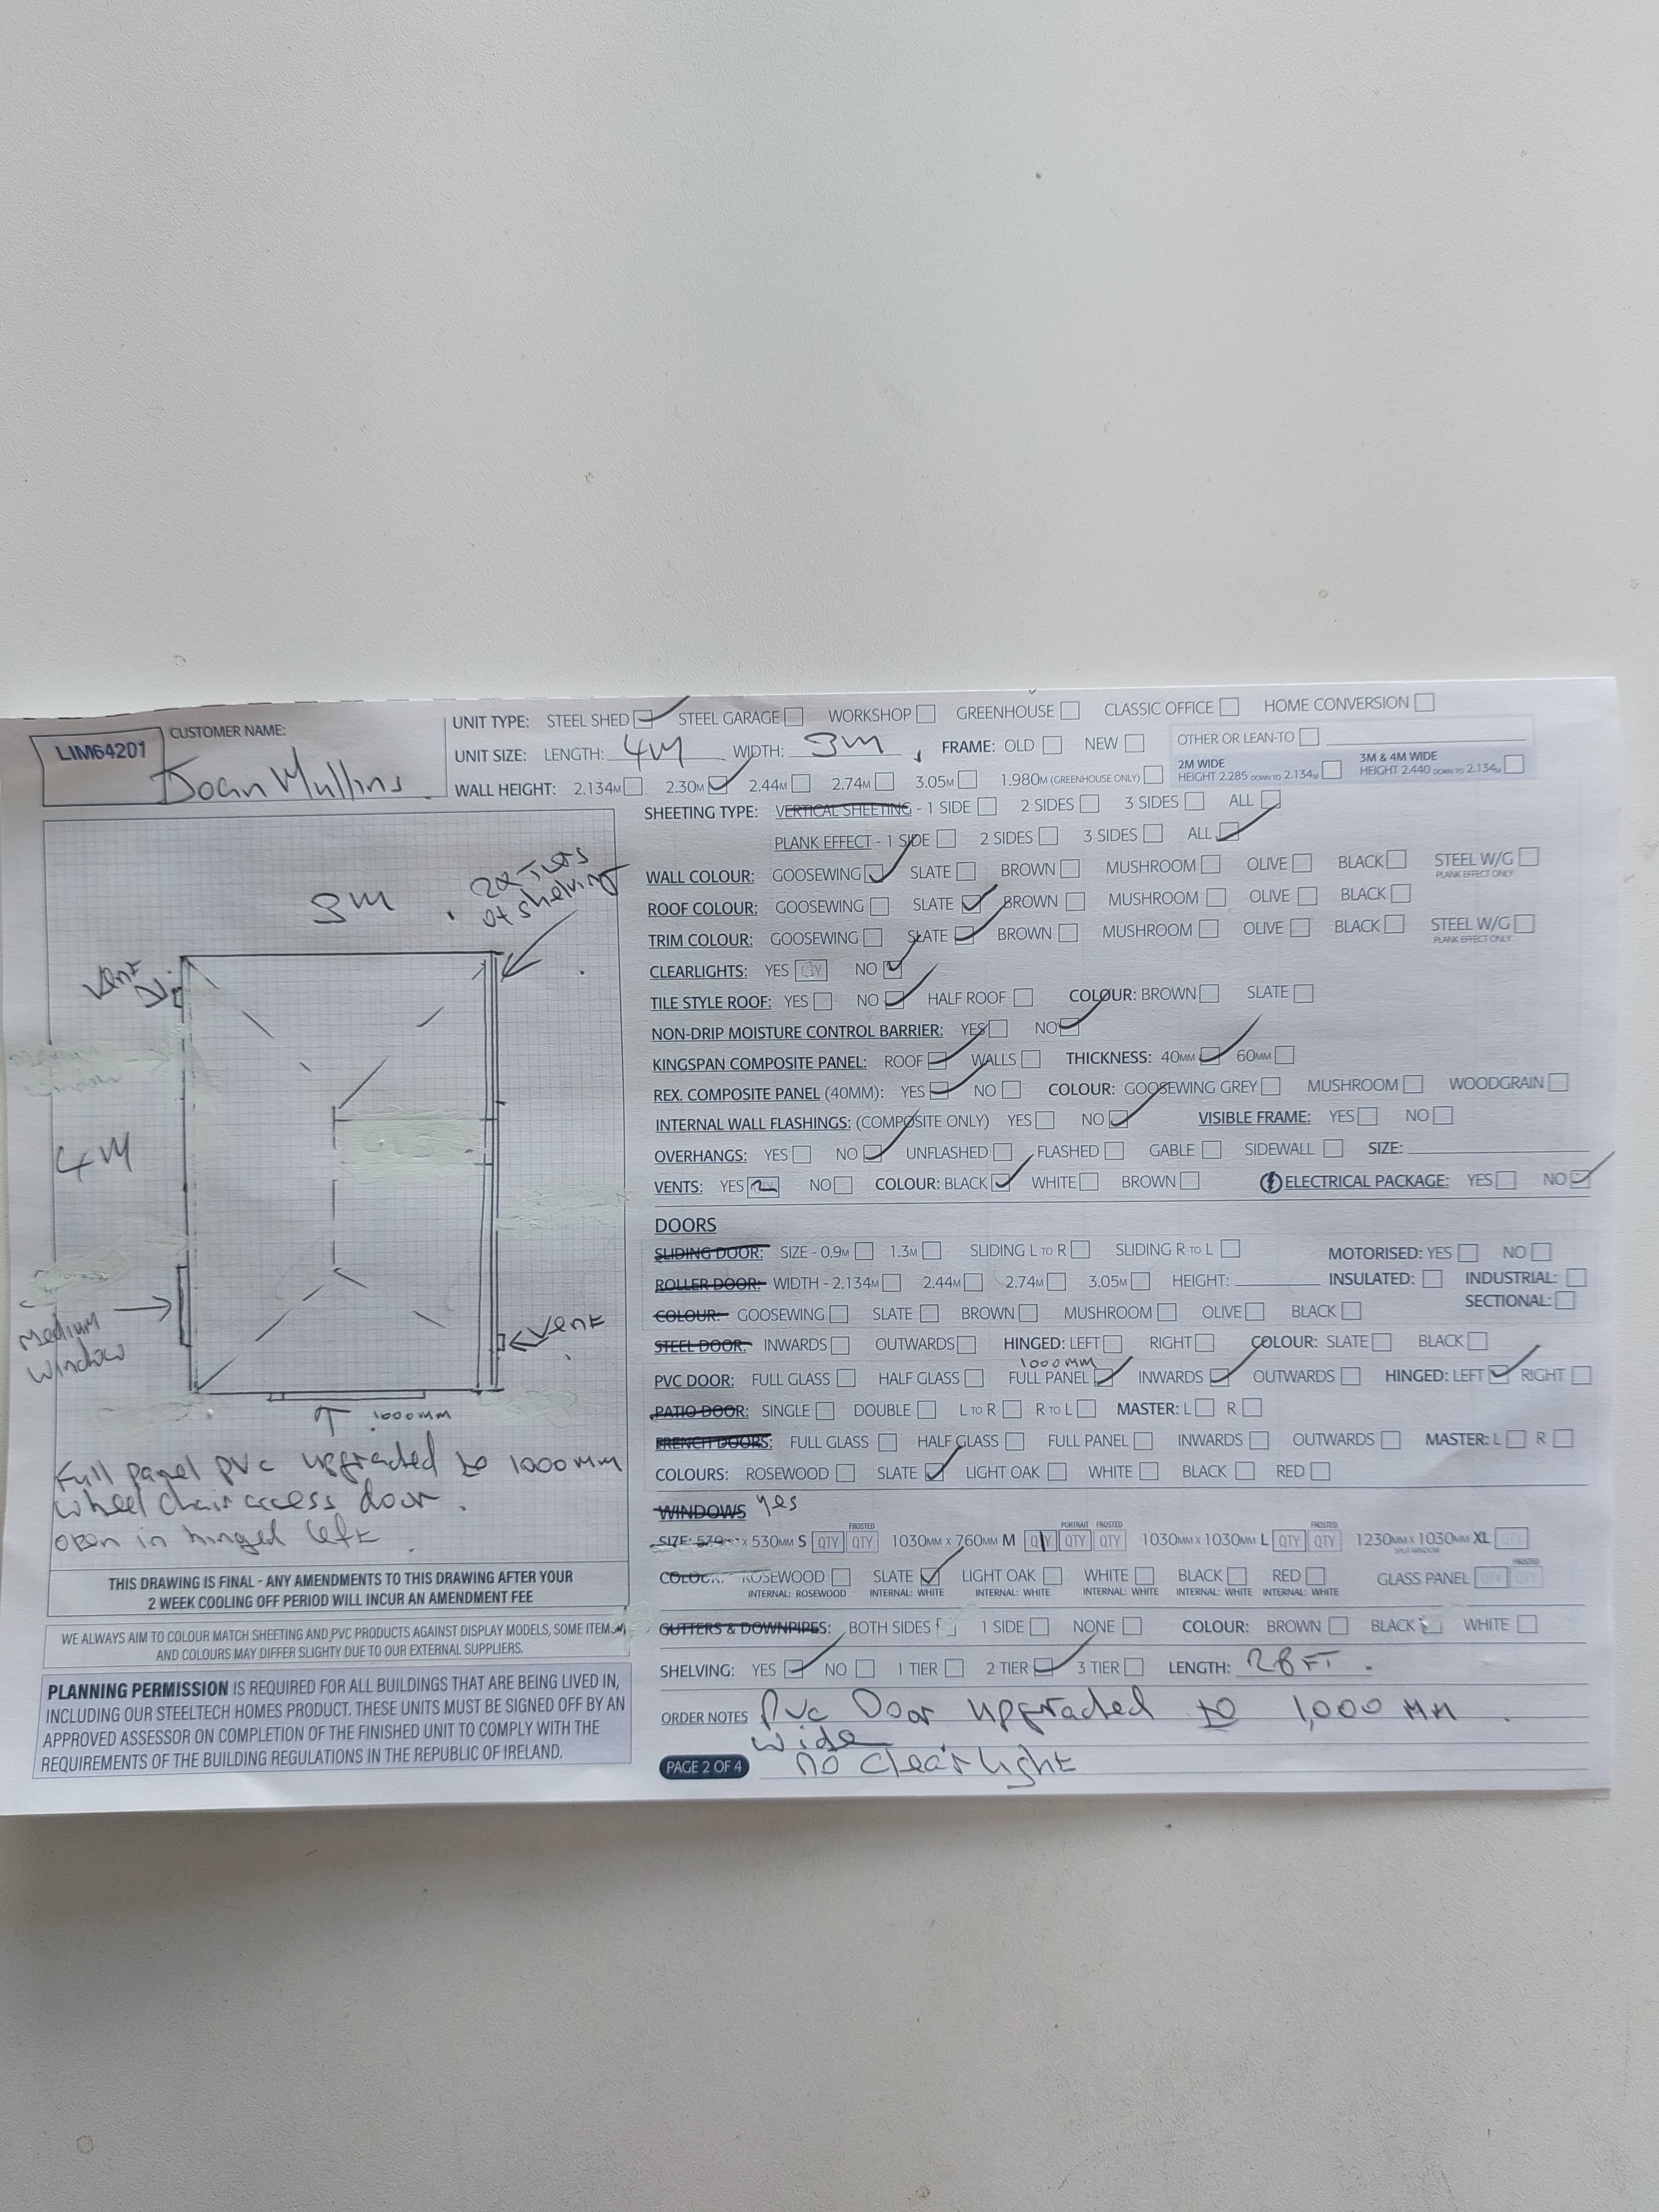 LIM64201
CUSTOMER NAME:
Joan Mullins
UNIT TYPE: STEEL SHED STEEL GARAGE WORKSHOP GREENHOUSE CLASSIC OFFICE HOME CONVERSION
UNIT SIZE: LENGTH: 4M WIDTH: 3M FRAME: OLD NEW OTHER OR LEAN-TO
WALL HEIGHT: 2.134M 2.30M 2.44M 2.74M 3.05M 1.980M (GREENHOUSE ONLY)
2M WIDE
HEIGHT 2.285 DOWN TO 2.134M
3M & 4M WIDE
HEIGHT 2.440 DOWN TO 2.134M
3M
2x Tiers
of shelving
Vent
4M
Medium
window
Vent
1000mm
Full panel pvc upgraded to 1000mm
wheel chair access door.
open in hinged left
THIS DRAWING IS FINAL - ANY AMENDMENTS TO THIS DRAWING AFTER YOUR
2 WEEK COOLING OFF PERIOD WILL INCUR AN AMENDMENT FEE
WE ALWAYS AIM TO COLOUR MATCH SHEETING AND PVC PRODUCTS AGAINST DISPLAY MODELS, SOME ITEMS
AND COLOURS MAY DIFFER SLIGHTY DUE TO OUR EXTERNAL SUPPLIERS.
PLANNING PERMISSION IS REQUIRED FOR ALL BUILDINGS THAT ARE BEING LIVED IN,
INCLUDING OUR STEELTECH HOMES PRODUCT. THESE UNITS MUST BE SIGNED OFF BY AN
APPROVED ASSESSOR ON COMPLETION OF THE FINISHED UNIT TO COMPLY WITH THE
REQUIREMENTS OF THE BUILDING REGULATIONS IN THE REPUBLIC OF IRELAND.
SHEETING TYPE: VERTICAL SHEETING - 1 SIDE 2 SIDES 3 SIDES ALL
PLANK EFFECT - 1 SIDE 2 SIDES 3 SIDES ALL
WALL COLOUR: GOOSEWING SLATE BROWN MUSHROOM OLIVE BLACK STEEL W/G
PLANK EFFECT ONLY
ROOF COLOUR: GOOSEWING SLATE BROWN MUSHROOM OLIVE BLACK
TRIM COLOUR: GOOSEWING SLATE BROWN MUSHROOM OLIVE BLACK STEEL W/G
PLANK EFFECT ONLY
CLEARLIGHTS: YES QTY NO
TILE STYLE ROOF: YES NO HALF ROOF COLOUR: BROWN SLATE
NON-DRIP MOISTURE CONTROL BARRIER: YES NO
KINGSPAN COMPOSITE PANEL: ROOF WALLS THICKNESS: 40MM 60MM
REX. COMPOSITE PANEL (40MM): YES NO COLOUR: GOOSEWING GREY MUSHROOM WOODGRAIN
INTERNAL WALL FLASHINGS: (COMPOSITE ONLY) YES NO VISIBLE FRAME: YES NO
OVERHANGS: YES NO UNFLASHED FLASHED GABLE SIDEWALL SIZE:
VENTS: YES 2 NO COLOUR: BLACK WHITE BROWN ELECTRICAL PACKAGE: YES NO
DOORS
SLIDING DOOR: SIZE - 0.9M 1.3M SLIDING L TO R SLIDING R TO L MOTORISED: YES NO
ROLLER DOOR: WIDTH - 2.134M 2.44M 2.74M 3.05M HEIGHT: INSULATED: INDUSTRIAL:
COLOUR: GOOSEWING SLATE BROWN MUSHROOM OLIVE BLACK SECTIONAL:
STEEL DOOR: INWARDS OUTWARDS HINGED: LEFT RIGHT COLOUR: SLATE BLACK
1000mm
PVC DOOR: FULL GLASS HALF GLASS FULL PANEL INWARDS OUTWARDS HINGED: LEFT RIGHT
PATIO DOOR: SINGLE DOUBLE L TO R R TO L MASTER: L R
FRENCH DOORS: FULL GLASS HALF GLASS FULL PANEL INWARDS OUTWARDS MASTER: L R
COLOURS: ROSEWOOD SLATE LIGHT OAK WHITE BLACK RED
WINDOWS yes
FROSTED PORTRAIT FROSTED FROSTED
SIZE: 530MM x 530MM S QTY QTY 1030MM x 760MM M QTY QTY QTY 1030MM x 1030MM L QTY QTY 1230MM x 1030MM XL QTY
SPLIT WINDOW
FROSTED
COLOUR: ROSEWOOD SLATE LIGHT OAK WHITE BLACK RED GLASS PANEL QTY QTY
INTERNAL: ROSEWOOD INTERNAL: WHITE INTERNAL: WHITE INTERNAL: WHITE INTERNAL: WHITE INTERNAL: WHITE
GUTTERS & DOWNPIPES: BOTH SIDES 1 SIDE NONE COLOUR: BROWN BLACK WHITE
SHELVING: YES NO 1 TIER 2 TIER 3 TIER LENGTH: 28 FT.
ORDER NOTES Pvc Door upgraded to 1,000 MM.
wide
no clearlight
PAGE 2 OF 4